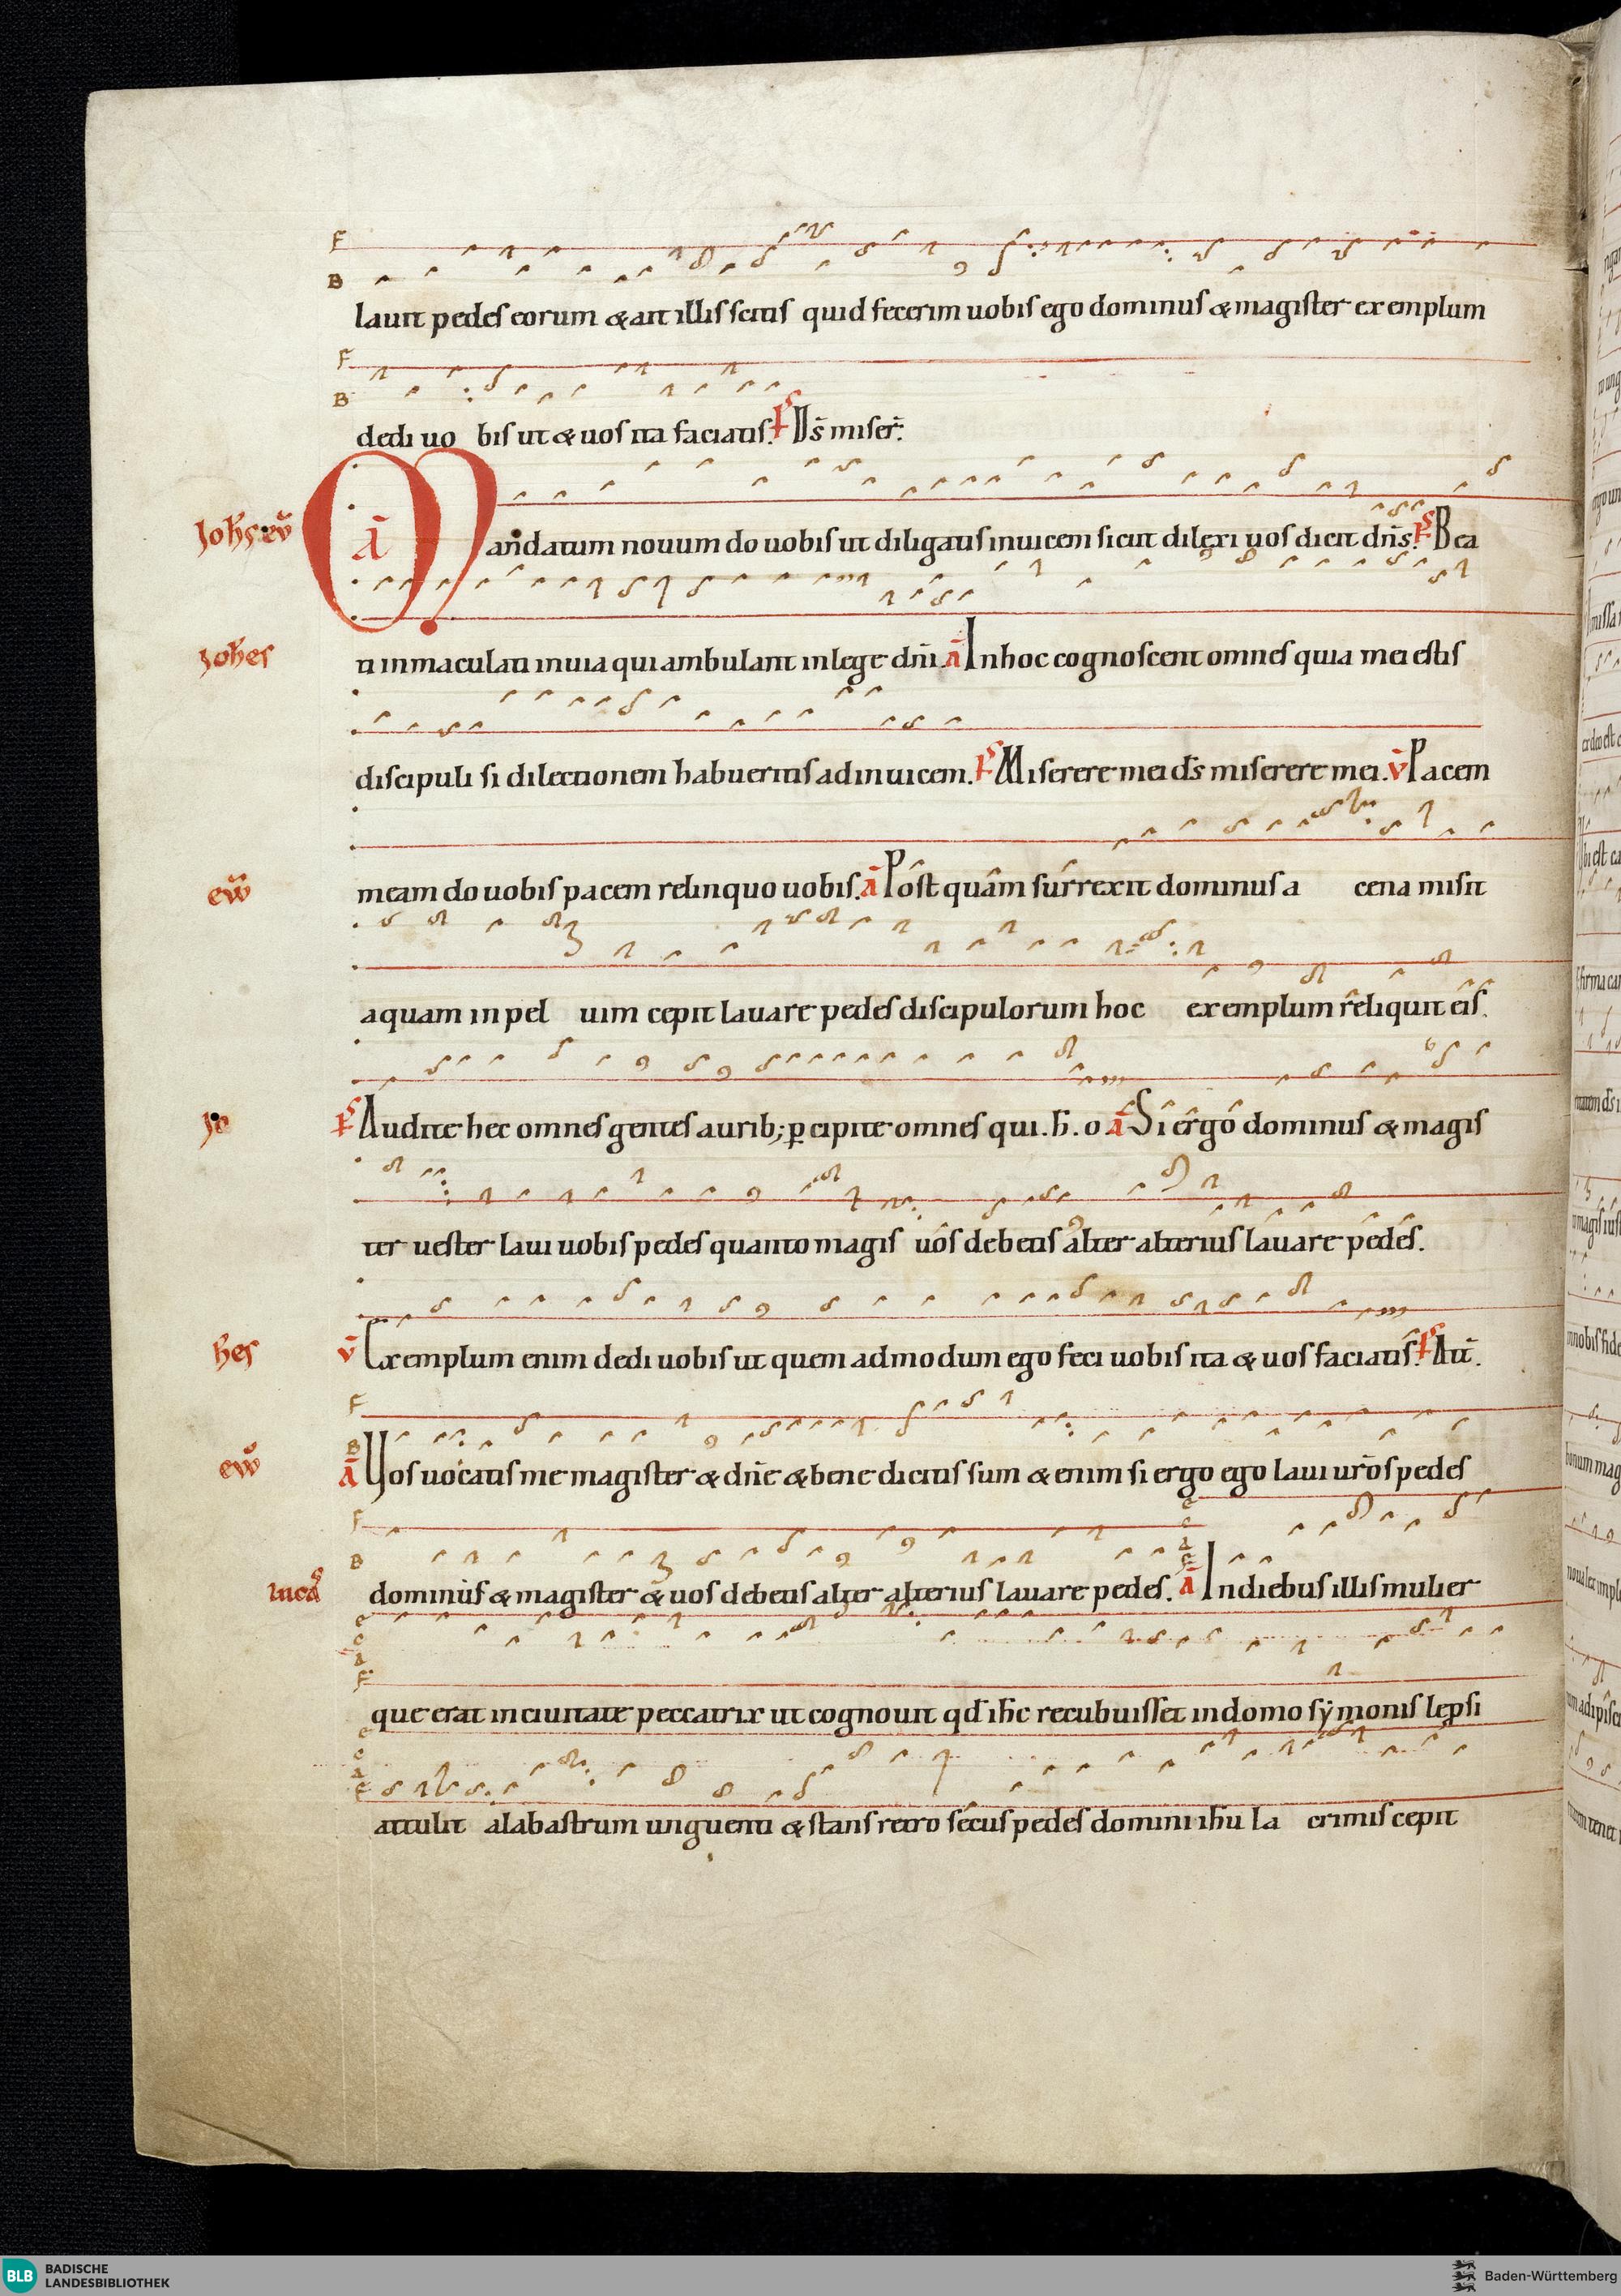 F
B
lauit pedes eorum & ait illis scitis quid fecerim uobis ego dominus & magister exemplum
F
B
dedi uo bis ut & uos ita faciatis. Ps D̄s miser̄.
Joh̄s ev̄ Ā Mandatum nouum do uobis ut diligatis inuicem sicut dilexi uos dicit dn̄s. Ps Bea
Joh̄es ti inmaculati inuia qui ambulant inlege dn̄i. Ā In hoc cognoscent omnes quia mei estis
discipuli si dilectionem habueritis adinuicem. Ps Miserere mei ds̄ miserere mei. V̄ Pacem
ew̄ meam do uobis pacem relinquo uobis. Ā Post quam surrexit dominus a cena misit
aquam in pel uim cepit lauare pedes discipulorum hoc exemplum reliquit eis.
Jo Ps Audite hec omnes gentes aurib; ꝑcipite omnes qui. h̄. o Ā Si ergo dominus & magis
ter uester laui uobis pedes quanto magis uos debetis alter alterius lauare pedes.
h̄es V̄ Exemplum enim dedi uobis ut quem admodum ego feci uobis ita & uos faciatis. Ps Aut̄.
F
B
ew̄ Ā Vos uocatis me magister & dn̄e & bene dicitis sum & enim si ergo ego laui ur̄os pedes
F
B
lucas dominus & magister & uos debetis alter alterius lauare pedes. Ā In diebus illis mulier
e
c
a
F
que erat in ciuitate peccatrix ut cognouit qd̄ ih̄c recubuisset in domo sẏmonis lepsi
e
c
a
F
attulit alabastrum unguenti & stans retro secus pedes domini ih̄u la crimis cepit
BLB BADISCHE
LANDESBIBLIOTHEK
Baden-Württemberg